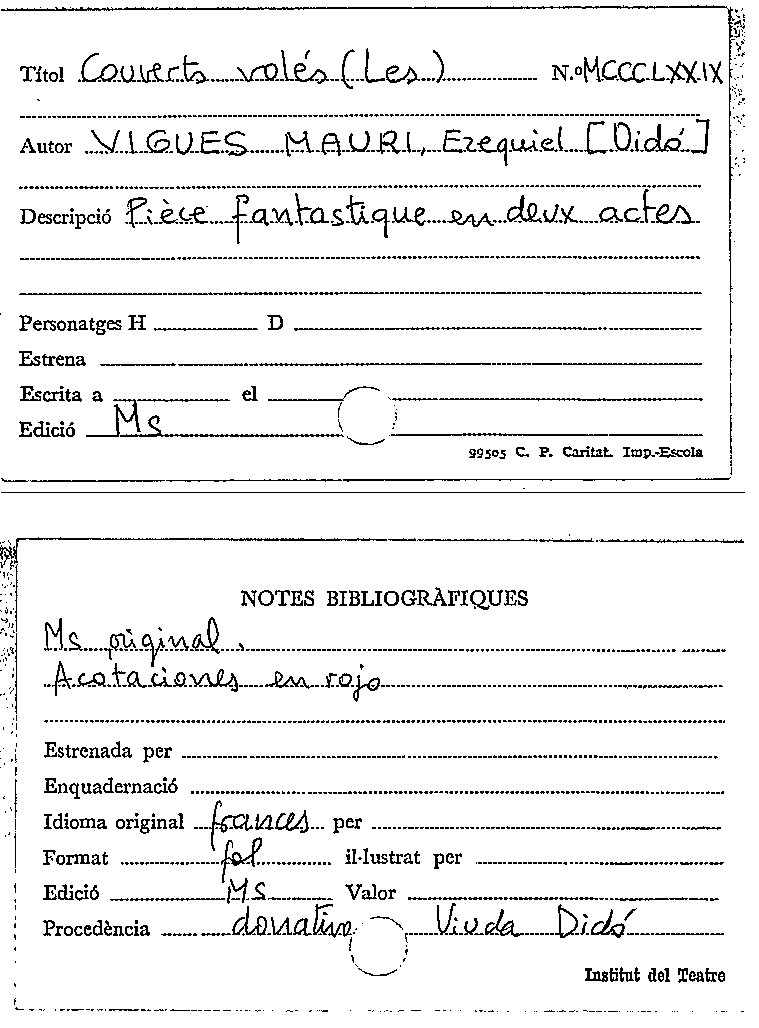 Títol Couverts volés (Les) N.º MCCCLXXIX
Autor VIGUES MAURI, Ezequiel [Didó]
Descripció Pièce fantastique en deux actes
Personatges H D
Estrena
Escrita a el
Edició Ms
99505 C. P. Caritat. Imp.-Escola
NOTES BIBLIOGRÀFIQUES
Ms original.
Acotaciones en rojo
Estrenada per
Enquadernació
Idioma original frances per
Format fol il·lustrat per
Edició MS Valor
Procedència donativo Viuda Didó
Institut del Teatre